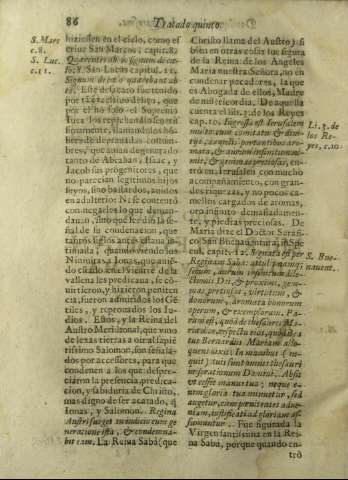 86
Tratado quinto.
S. Marc
c.8.
S. Luc.
c.11.
hiziessen en el cielo, como es-
criue San Marcos: capit.8.
Quærentes ab eo signum de cæ-
lo: &. San Lucas capitul. 11.
Signum de cœlo quærebant ab
eo. Este desacato fue tenido
Iuca los reprehendio seueri-
simamente, llamandolos hijos
de deprauadas costum-
bres, que auian degenerado
tanto de Abrahan, Isaac, y
Iacob sus progenitores, que
no parecian legitimos hijos
suyos, sino bastardos, auidos
en adulterio: N i se contentò
con negarles lo que deman-
dauan, sino que les dio la se-
ñal de su condenacion, que
tantos siglos antes estaua in-
timada, quando viendo los
Niniuitas a Ionas, que auien-
do estado en el vientre de la
vallena les predicaua, se cō-
uirtieron, y hizieron peniten
cia, fueron admitidos los Gē-
tiles, y reprouados los Iu-
dios. Estos, y la Reina del
Austro Meridional, que vino
de lexas tierras a oìr al sapiē
tissimo Salomon, son señala-
dos por accessores, para que
condenen a los que despre-
ciaron la presencia, predica-
cion, y sabiduria de Christo,
mas digno de ser acatado, q̄
Ionas, y Salomon. Regina
Austri surget in iudicio cum ge
neratione ista, & condemna-
bit eam. La Reina Sabà (que
Christo llama del Austro) si
bien en otras cosas fue figura
de la Reina de los Angeles
Maria nuestra Señora, no en
conduzir pecadores, la que
es Abogada de ellos, Madre
de misericordia. De aquella
cuenta el lib. 3. de los Reyes
cap. 10. Ingressa est Ierusalem
multa cum comitatu & diui-
tijs, camelis portantibus aro-
mata, & aurum infinitum ni-
mis, & gemmas pretiosas, en-
trò en Ierusalen con mucho
acompañamiento, con gran-
des riquezas, y no pocos ca-
mellos cargados de aromas,
oro infinito demasiadamen-
te, y piedras preciosas. De
Maria dize el Doctor Serafi-
co San Buenauentura, in Spe-
cul. capit. 12. Signata est per
Reginam Saba: attulit nanque
secum, aurum
ctimus Dei, & proximi, gem-
mas pretiosas, virtutum, &
donorum, aromata bonorum
operum, & exemplorum.
Mariam
eum
ratione
niam, iustificati ad gloriam as-
sumuntur. Fue figurada la
Virgen santissima en la Rei-
na Saba, porque quando en-
trò
Li. 3. de
los Re-
yes, c. 10.
S. Bue-
nauent.